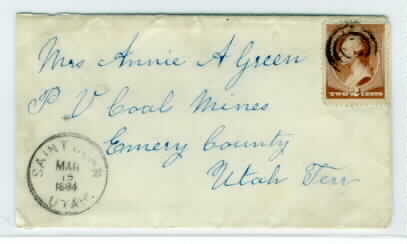 Mrs Annie A Green
P V Coal Mines
Emery County
Utah Terr
SAINT
MAR
15
1884
UTAH.
TWO CENTS